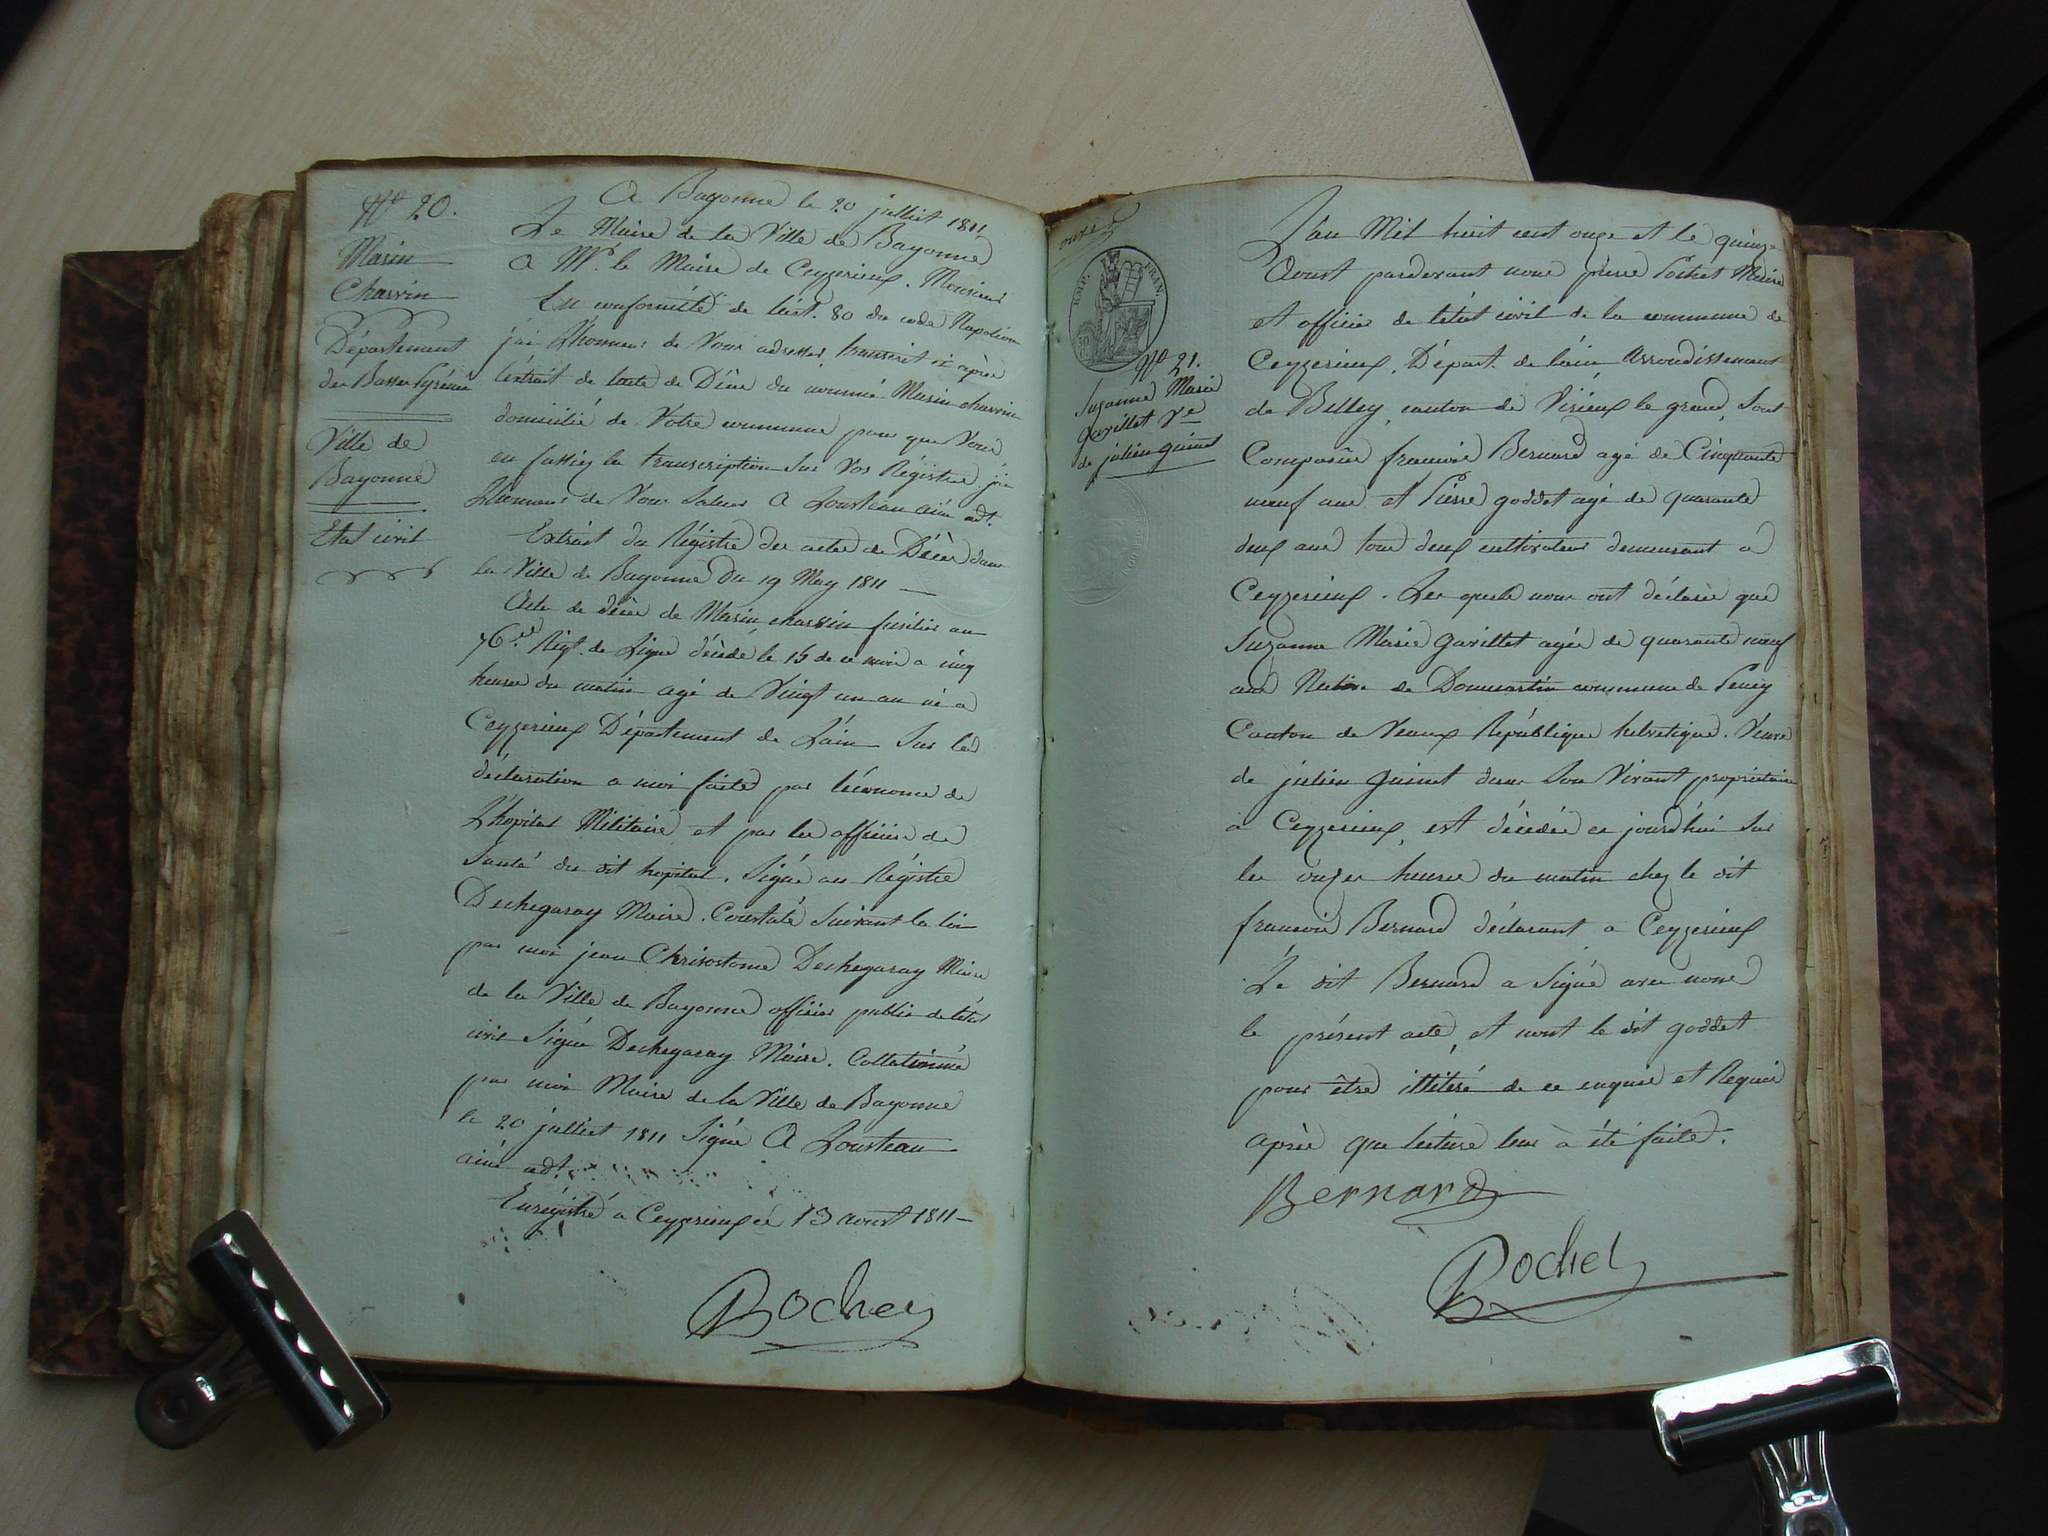 No 20.
Marin
Charvin
Département
des Basses Pyrénées
Ville de
Bayonne
Etat civil
A Bayonne le 20 juillet 1811
Le Maire de la Ville de Bayonne
A Mr. le Maire de Ceyzerieux. Monsieur
En conformité de l'art. 80 du code Napoléon
j'ai L'honneur de Vous adresser transcrit ci après
l'extrait de l'acte de Décès du nommé Marin charvin
domicilié de Votre commune pour que Vous
en fassiez la transcription Sur Vos Régistres j'ai
L'honneur de Vous Saluer A Lousteau ainé adt.
Extrait du Régistre des actes de Décès dans
la Ville de Bayonne Du 19 May 1811
Acte de décès de Marin charvin fusilier au
76.e Régt. de Ligne décédé le 15 de ce mois a cinq
heures du matin agé de Vingt un an né a
Ceyzerieux Département de L'ain Sur la
déclaration a moi faite par l'économe de
L'hopital Militaire et par les officiers de
Santé du dit hopital. Signé au Régistre
Dechegaray Maire. Constaté Suivant la loi
par moi jean Chrisostome Dechegaray Maire
de la Ville de Bayonne officier public de l'état
civil Signé Dechegaray Maire. Collationné
par moi Maire de la Ville de Bayonne
le 20 juillet 1811 Signé A Lousteau
ainé adt.
Enrégistré a Ceyzerieux ce 13 aoust 1811
Rochet
onze
EMP. FRAN.
No 21.
Suzanne Marie
Gavillet Ve
de julien guinet
L'an Mil huit cent onze et le quinze
Aoust pardevant nous pierre Rochet Maire
et officier de l'état civil de la commune de
Ceyzerieux, Départ. de l'ain, Arrondissement
de Belley, canton de Virieux le grand, Sont
Comparus francois Bernard agé de Cinquante
neuf ans et Pierre goddet agé de quarante
deux ans tous deux cultivateurs demeurant a
Ceyzerieux. Les quels nous ont déclaré que
Suzanne Marie Gavillet agée de quarante neuf
ans Native de Dommartin commune de
Canton de Veaux République helvetique. Veuve
de julien Guinet dans Son Vivant propriétaire
à Ceyzerieux, est décédée ce jourd'hui Sur
les onzes heures du matin chez le dit
francois Bernard déclarant a Ceyzerieux
Le dit Bernard a Signé avec nous
le présent acte, et nont le dit goddet
pour être illitéré de ce enquis et Requis
après que lecture leur à été faite.
Bernard
Rochet